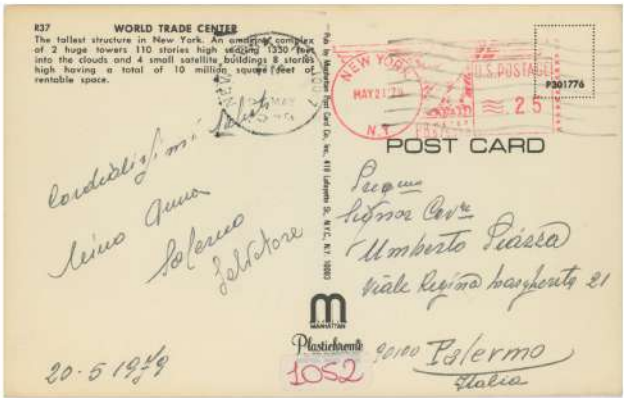 R37 WORLD TRADE CENTER
The tallest structure in New York. An amazing complex
of 2 huge towers 110 stories high soaring 1350 feet
into the clouds and 4 small satellite buildings 8 stories
high having a total of 10 million square feet of
rentable space.
Cordialissimi saluti
Nino Anna
Salerno
Salvatore
20-5 1979
Pub. by Manhattan Post Card Co., Inc., 418 Lafayette St., N.Y.C., N.Y. 10003
MANHATTAN
Plastichrome
1052
NEW YORK
MAY 21 '79
N.Y.
U.S. POSTAGE
.25
P301776
POST CARD
Signor Cav.re
Umberto Piazza
Viale Regina Margherita 21
90100 Palermo
Italia